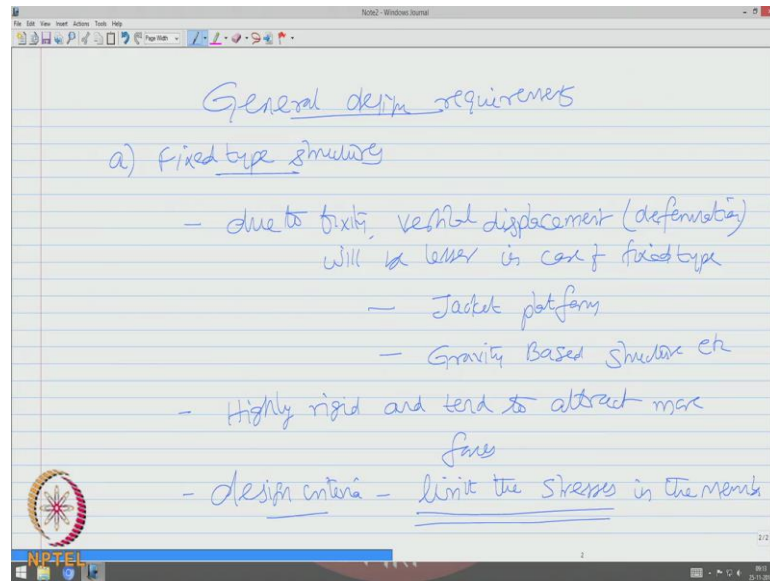 Note2 - Windows Journal
File Edit View Insert Actions Tools Help
Page Width
General design requirements
a) Fixed type structures
- due to fixity, vertical displacement (deformation)
will be lesser in case of fixed type
- Jacket platform
- Gravity Based structure etc
- Highly rigid and tend to attract more
forces
- design criteria - limit the stresses in the memb
2/2
2
NPTEL
25-11-20